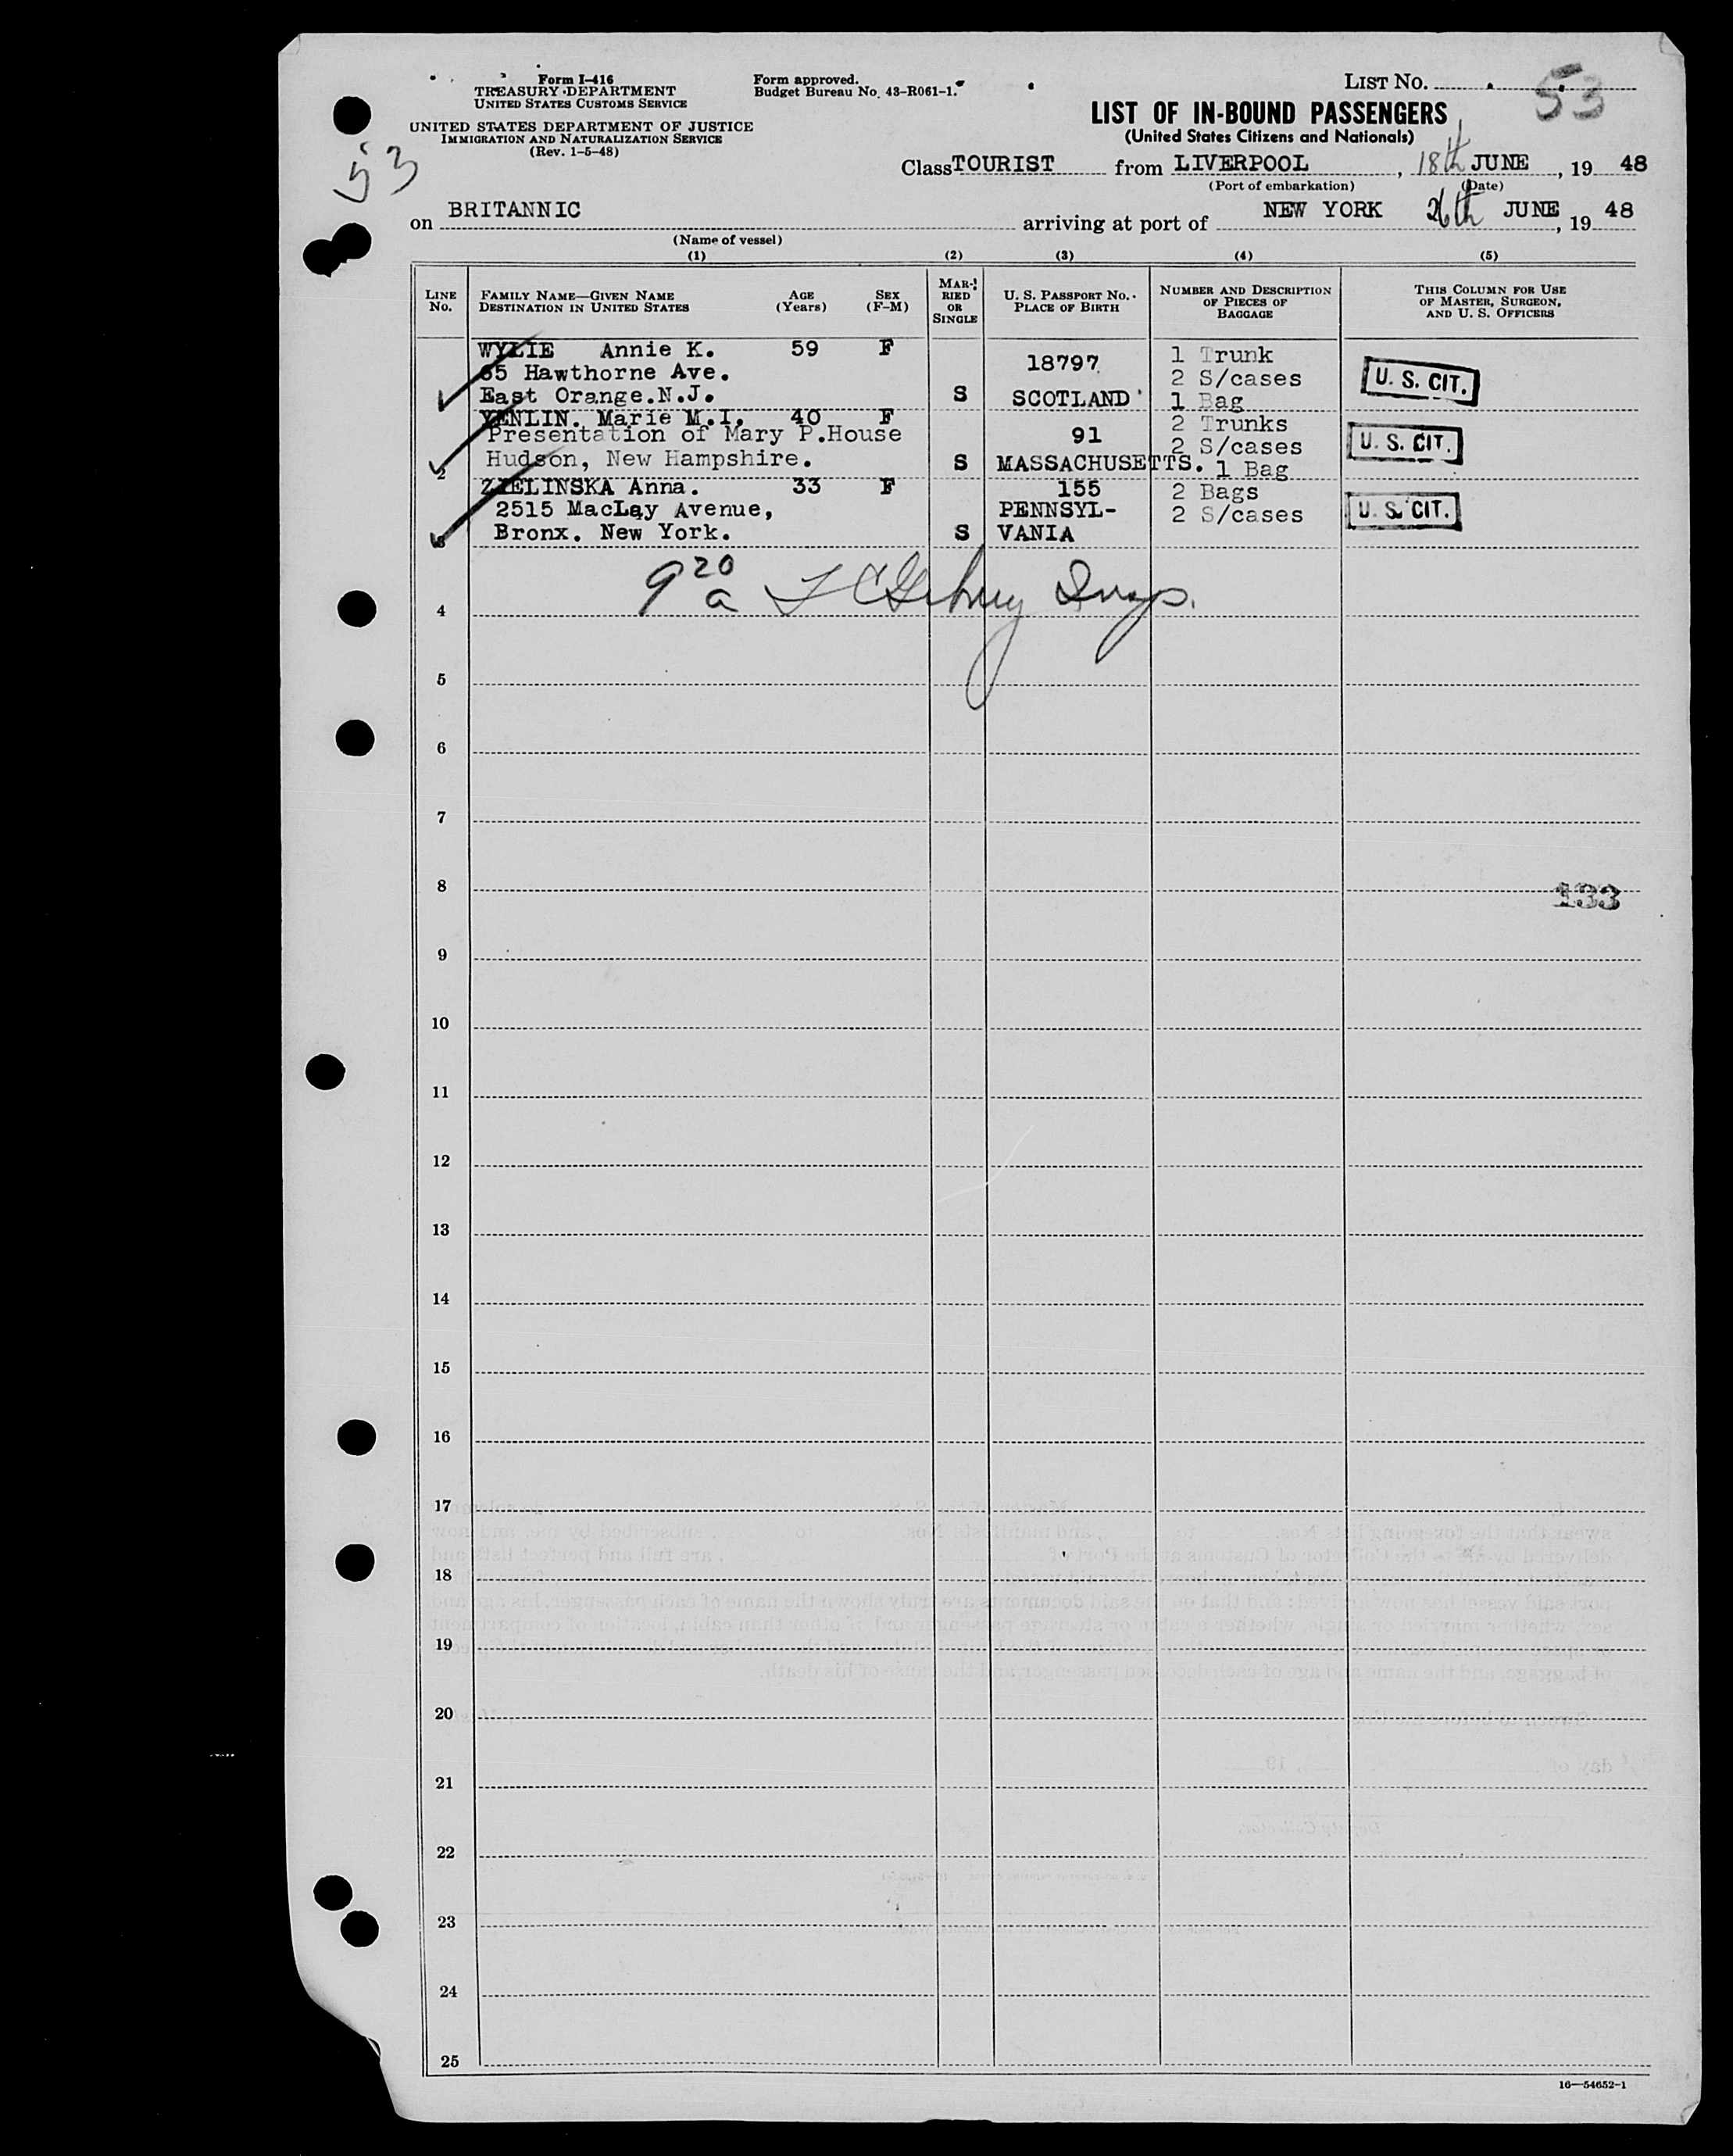 Form I-416
TREASURY DEPARTMENT
UNITED STATES CUSTOMS SERVICE
UNITED STATES DEPARTMENT OF JUSTICE
IMMIGRATION AND NATURALIZATION SERVICE
(Rev. 1-5-48)
53
Form approved.
Budget Bureau No. 43-R061-1.
LIST NO. 53
LIST OF IN-BOUND PASSENGERS
(United States Citizens and Nationals)
Class TOURIST from LIVERPOOL, 18th JUNE, 19 48
(Port of embarkation) (Date)
on BRITANNIC arriving at port of NEW YORK 26th JUNE, 19 48
(Name of vessel)
(1) (2) (3) (4) (5)
LINE NO. FAMILY NAME—GIVEN NAME DESTINATION IN UNITED STATES AGE (Years) SEX (F-M) MARRIED OR SINGLE U. S. PASSPORT NO. PLACE OF BIRTH NUMBER AND DESCRIPTION OF PIECES OF BAGGAGE THIS COLUMN FOR USE OF MASTER, SURGEON, AND U. S. OFFICERS
WYLIE Annie K. 59 F 18797 1 Trunk
65 Hawthorne Ave. 2 S/cases U. S. CIT.
East Orange.N.J. S SCOTLAND 1 Bag
Marie M.I. 40 F 2 Trunks
Presentation of Mary P.House 91 2 S/cases U. S. CIT.
2 Hudson, New Hampshire. S MASSACHUSETTS. 1 Bag
ZIELINSKA Anna. 33 F 155 2 Bags
2515 MacLay Avenue, PENNSYL- 2 S/cases U. S. CIT.
3 Bronx. New York. S VANIA
9 20 a Insp.
4
5
6
7
8
133
9
10
11
12
13
14
15
16
17
18
19
20
21
22
23
24
25
16—54652-1